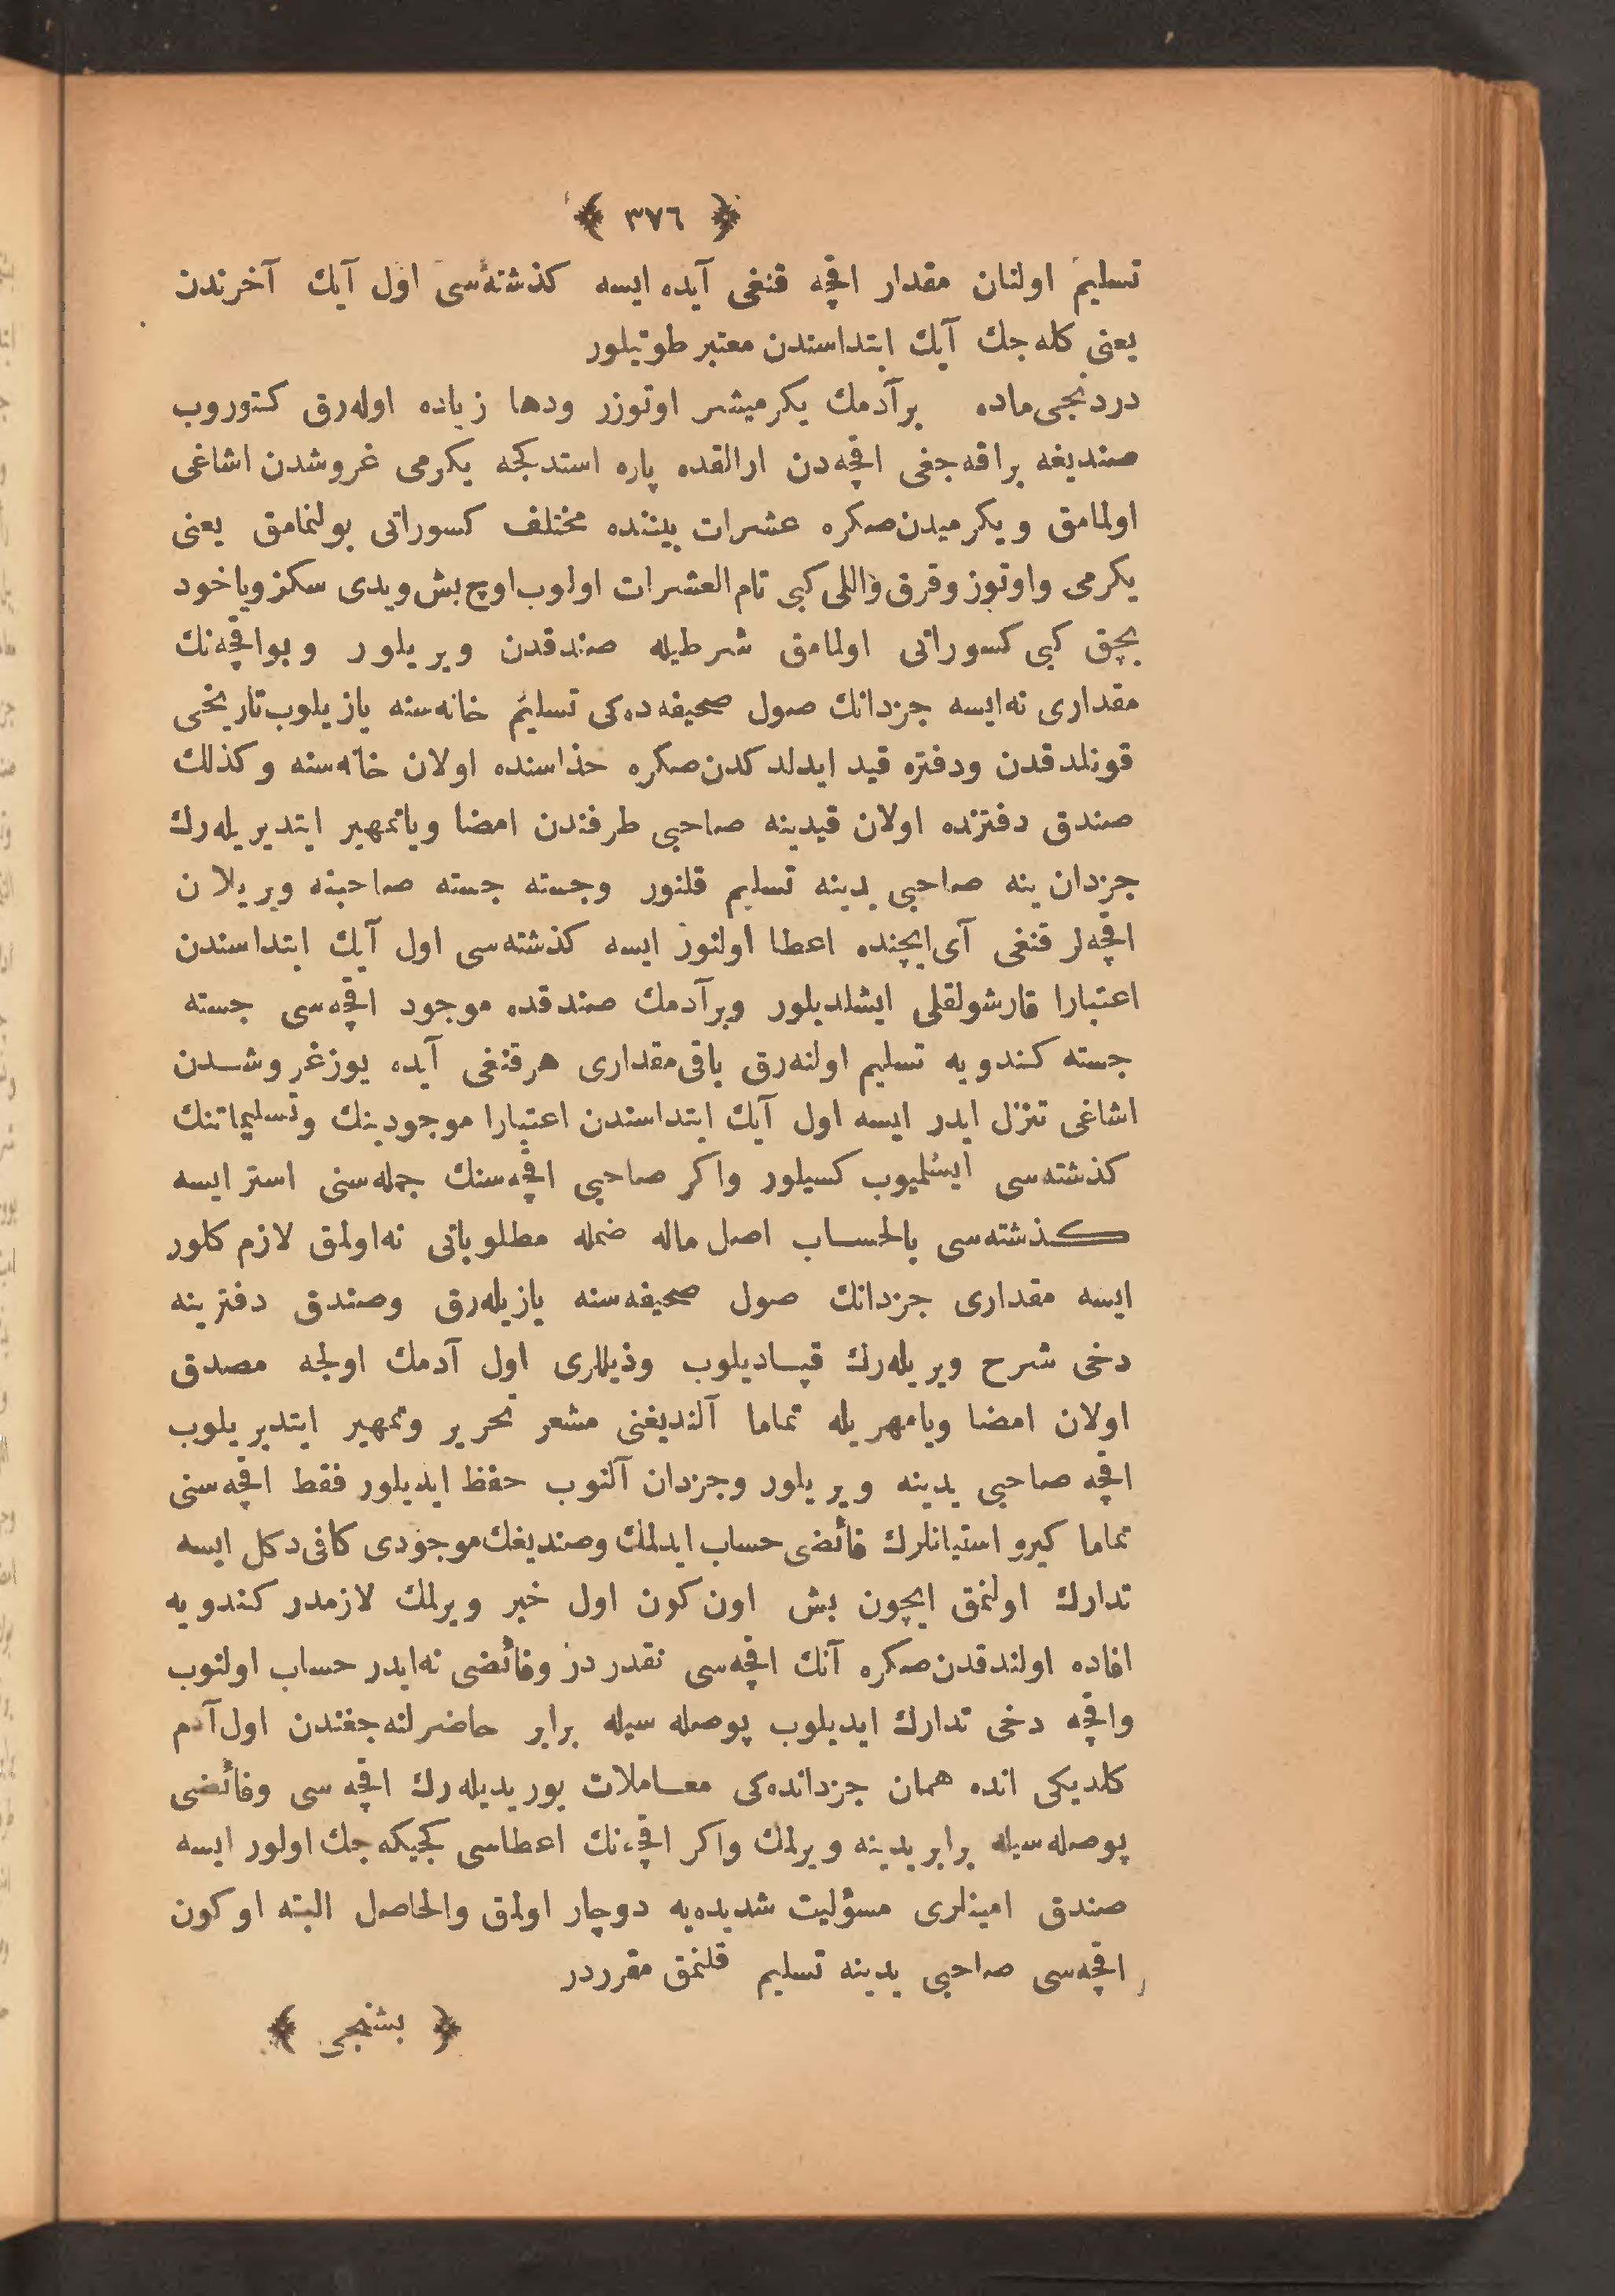 ﴿ ٣٧٦ ﴾
تسليم اولنان مقدار اقچه قنغى آيده ايسه كذشته‌سى اول آيك آخرندن
يعنى كله‌جك آيك ابتداسندن معتبر طوتيلور
دردنجى ماده برآدمك يكرميشر اوتوزر ودها زياده اوله‌رق كتوروب
صنديغه براقه‌جغى اقچه‌دن ارالقده پاره استدكجه يكرمى غروشدن اشاغى
اولمامق ويكرميدن صكره عشرات بيننده مختلف كسوراتى بولنمامق يعنى
يكرمى واوتوز وقرق واللى كبى تام العشرات اولوب اوچ بش ويدى سكز وياخود
بچق كبى كسوراتى اولمامق شرطيله صندقدن ويريلور وبو اقچه‌نك
مقدارى نه‌ايسه جزدانك صول صحيفه‌ده‌كى تسليم خانه‌سنه يازيلوب تاريخى
قونلدقدن ودفتره قيد ايدلدكدن صكره حذاسنده اولان خانه‌سنه وكذلك
صندق دفترنده اولان قيدينه صاحبى طرفندن امضا وياتمهير ايتديريله‌رك
جزدان ينه صاحبى يدينه تسليم قلنور وجسته جسته صاحبنه ويريلان
اقچه‌لر قنغى آى ايچنده اعطا اولنور ايسه كذشته‌سى اول آيك ابتداسندن
اعتبارا قارشولقلى ايشلديلور وبرآدمك صندقده موجود اقچه‌سى جسته
جسته كندويه تسليم اولنه‌رق باقى مقدارى هرقنغى آيده يوزغروشدن
اشاغى تنزل ايدر ايسه اول آيك ابتداسندن اعتبارا موجودينك وتسليماتنك
كذشته‌سى ايشلميوب كسيلور واكر صاحبى اقچه‌سنك جمله‌سنى استر ايسه
كذشته‌سى بالحساب اصل ماله ضمله مطلوباتى نه‌اولمق لازم كلور
ايسه مقدارى جزدانك صول صحيفه‌سنه يازيله‌رق وصندق دفترينه
دخى شرح ويريله‌رك قپاديلوب وذيللرى اول آدمك اولجه مصدق
اولان امضا ويامهريله تماما آلنديغنى مشعر تحرير وتمهير ايتديريلوب
اقچه صاحبى يدينه ويريلور وجزدان آلنوب حفظ ايديلور فقط اقچه‌سنى
تماما كيرو استيانلرك فائضى حساب ايدلمك وصنديغك موجودى كافى دكل ايسه
تدارك اولنمق ايچون بش اون كون اول خبر ويرلمك لازمدر كندويه
افاده اولندقدن صكره آنك اقچه‌سى نقدردر وفائضى نه‌ايدر حساب اولنوب
واقچه دخى تدارك ايديلوب پوصله‌سيله برابر حاضرلنه‌جغندن اول آدم
كلديكى انده همان جزدانده‌كى معاملات يوريديله‌رك اقچه‌سى وفائضى
پوصله‌سيله برابر يدينه ويرلمك واكر اقچه‌نك اعطاسى كجيكه‌جك اولور ايسه
صندق امينلرى مسؤليت شديده‌يه دوچار اولمق والحاصل البته اوكون
اقچه‌سى صاحبى يدينه تسليم قلنمق مقرردر
﴿ بشنجى ﴾